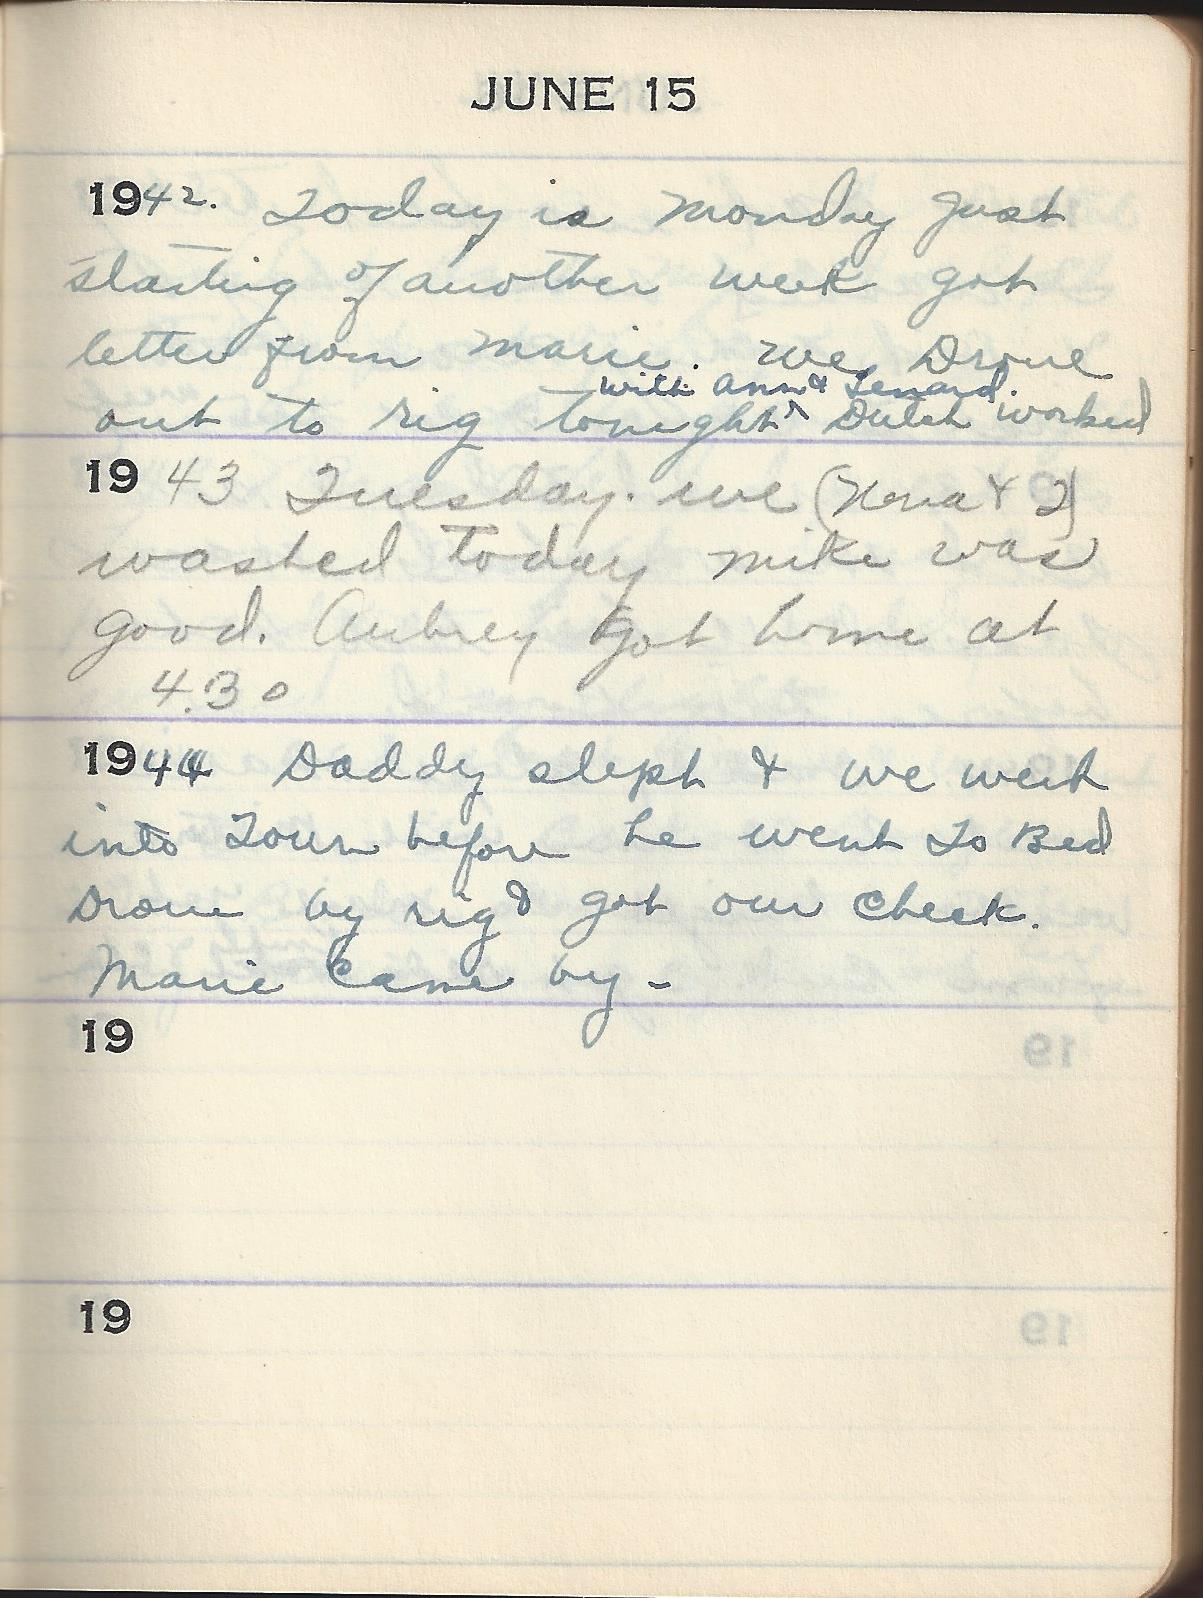 JUNE 15
1942. Today is Monday Just
starting of another week got
letter from Marie. We Drove
with Ann & Lenard.
out to rig tonight ^ Dutch worked
19 43 Tuesday. we (Nona & I)
washed today mike was
good. Aubrey got home at
4.30
1944 Daddy slept & we went
into Town before he went To Bed
Drove by rig & got our check.
Marie came by -
19
19